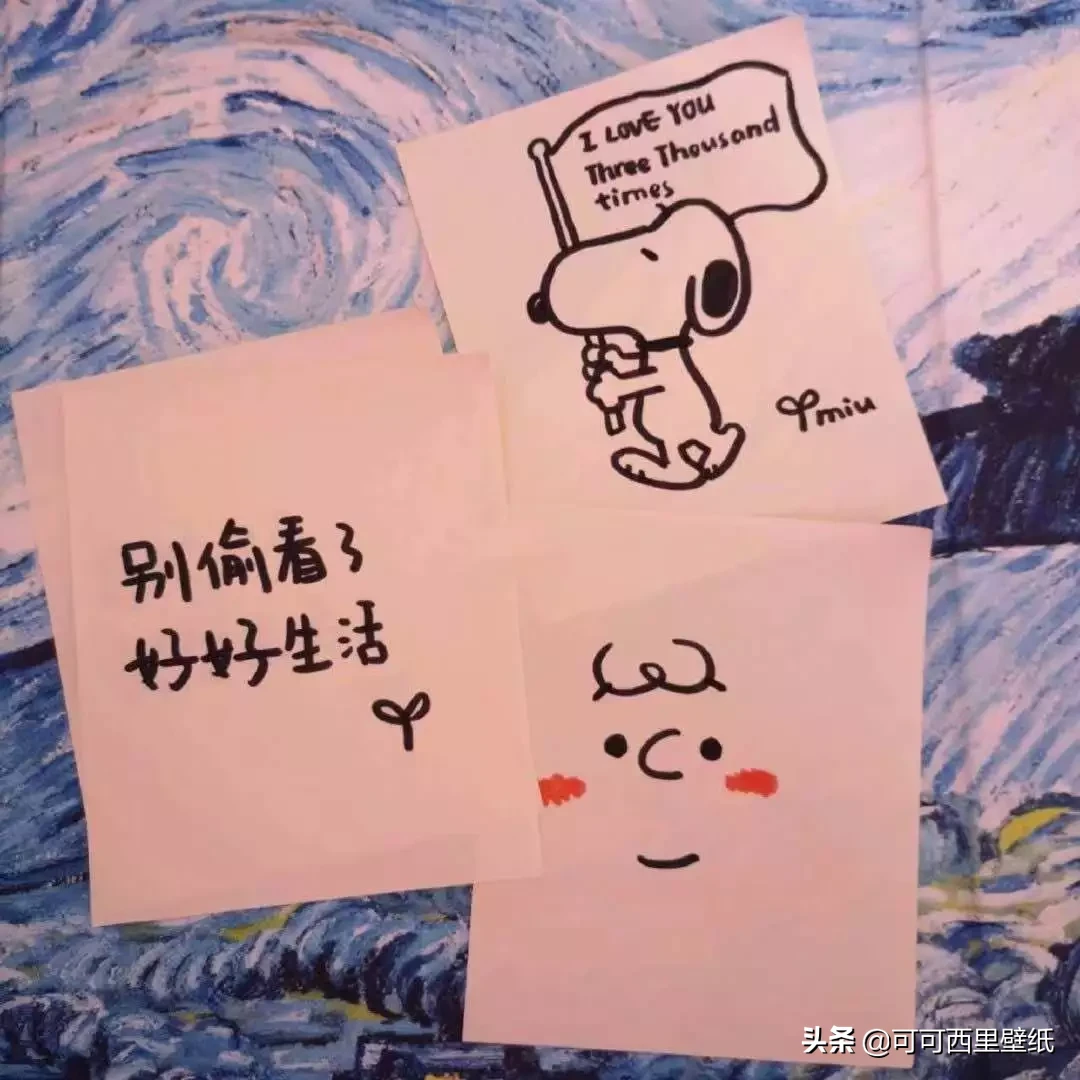 I LOVE YOU
Three Thousand
times
miu
别偷看了
好好生活
头条 @可可西里壁纸